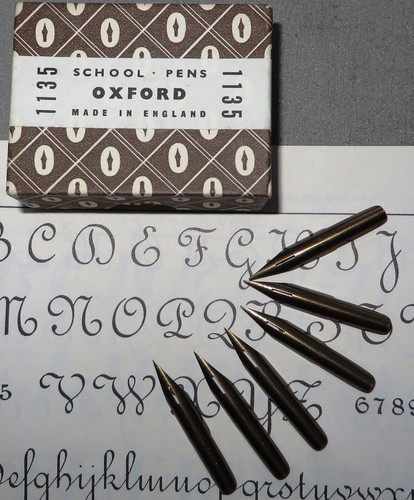 1135
SCHOOL · PENS
OXFORD
MADE IN ENGLAND
1135
B C D E F G H I J
M N O P Q R S T
5 V W X Y Z 6789
efghijklmnopqrstuvwx